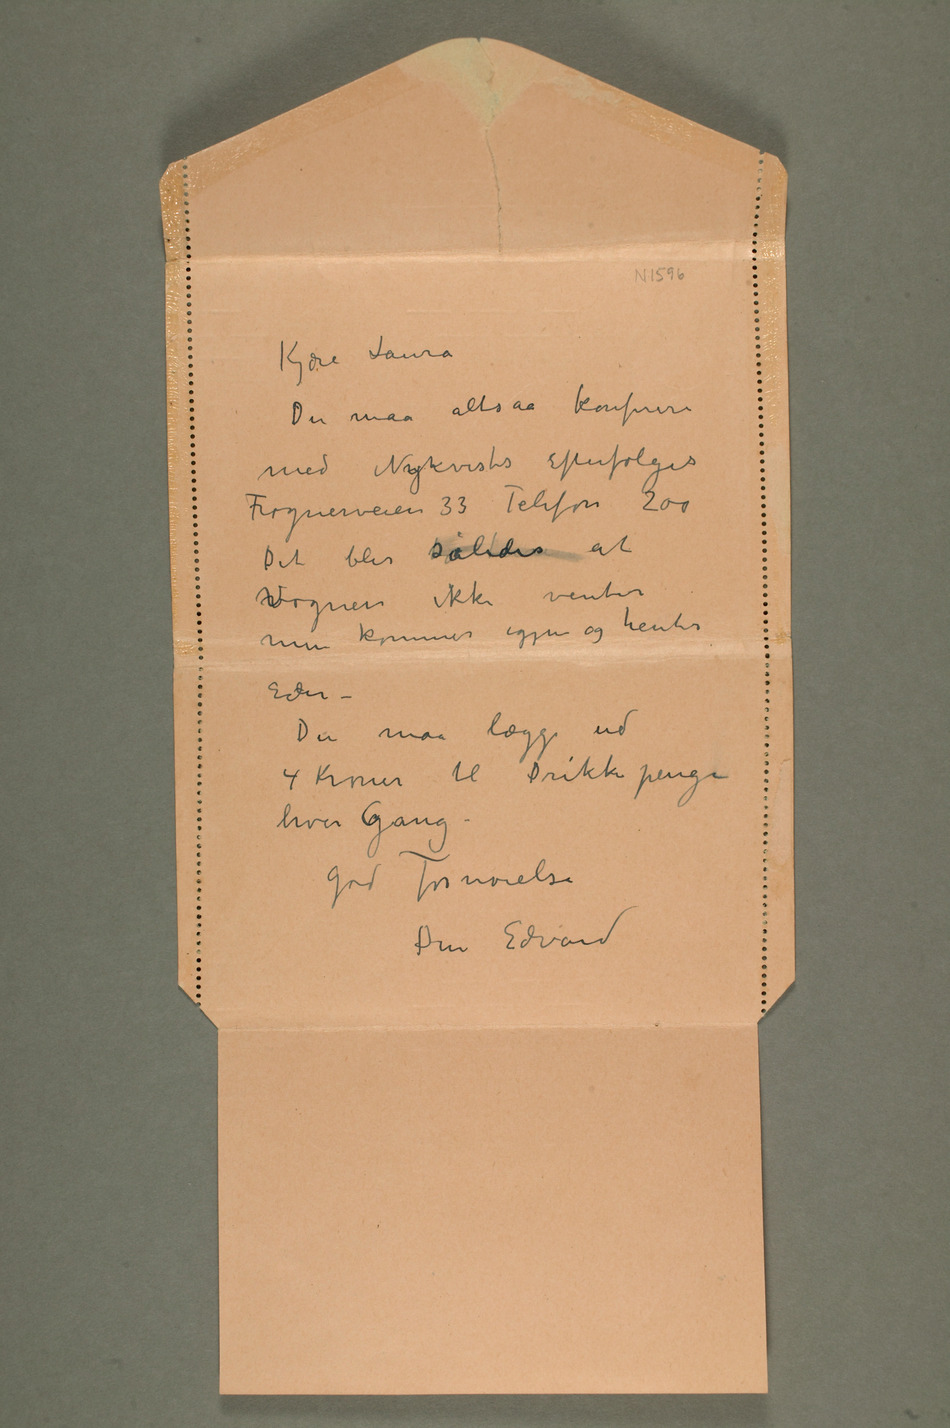 N1596
Kjære Laura
Du maa altsaa konferere
med Nykvists Efterfølger
Frognerveien 33 Telefon 200
Det blir således at
Vognen ikke venter
men kommer igjen og henter
Eder –
Du maa lægge ud
4 Kroner til Drikkepenge
hver Gang –
god Fornøielse
Din Edvard